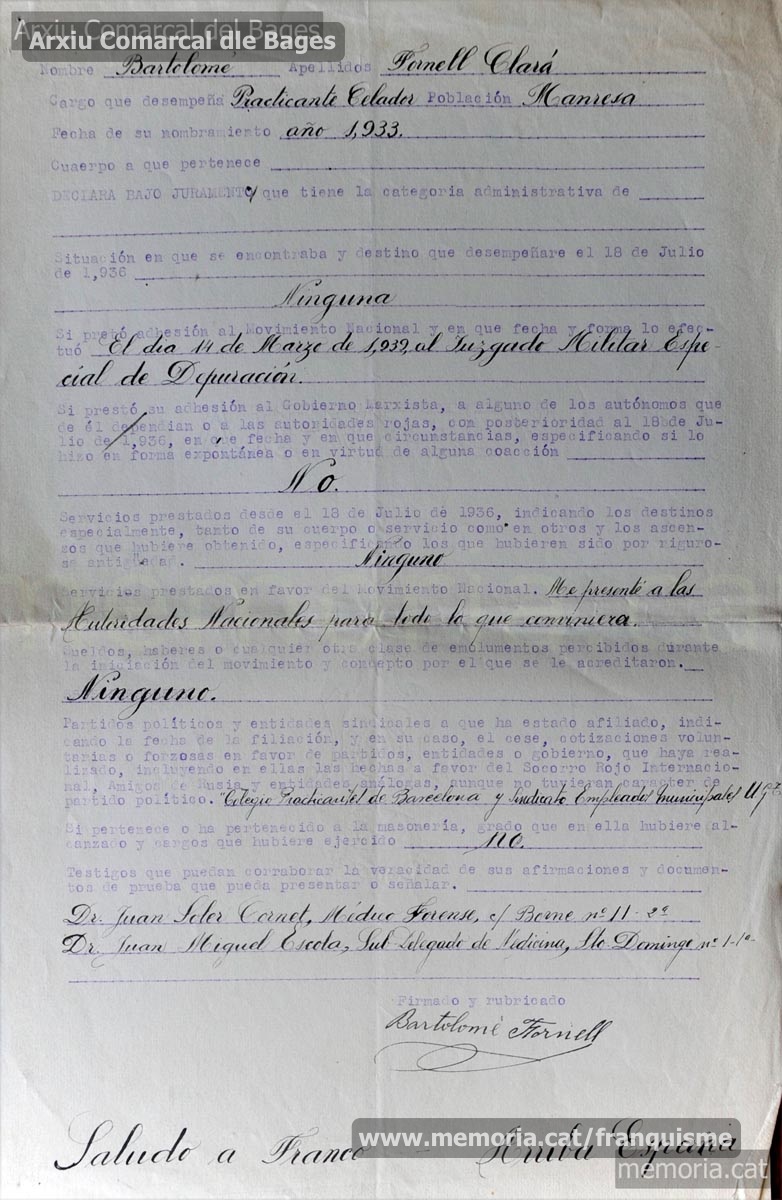 Arxiu Comarcal del Bages
Arxiu Comarcal dle Bages
Nombre Bartolomé Apellidos Fornell Clará
Cargo que desempeña Practicante Celador Población Manresa
Fecha de su nombramiento año 1,933.
Cuaerpo a que pertenece
DECLARA BAJO JURAMENTO, que tiene la categoria administrativa de
Situación en que se encontraba y destino que desempeñare el 18 de Julio
de 1,936
Ninguna
Si pretó adhesión al Movimiento Nacional y en que fecha y forma lo efec-
tuó El dia 14 de Marzo de 1,939, al Juzgado Militar Espe-
cial de Depuración.
Si prestó su adhesión al Gobierno Marxista, a alguno de los autónomos que
de él dependian o a las autoridades rojas, con posterioridad al 18 de Ju-
lio de 1,936, en que fecha y em que circunstancias, especificando si lo
hizo en forma expontánea o en virtud de alguna coacción
No.
Servicios prestados desde el 18 de Julio de 1936, indicando los destinos
especialmente, tanto de su cuerpo o servicio como en otros y los ascen-
sos que hubiere obtenido, especificando los que hubieren sido por riguro-
sa antigüedad. Ninguno
Servicios prestados en favor del Movimiento Nacional. Me presenté a las
Autoridades Nacionales para todo lo que conviniera.
Sueldos, haberes o cualquier otra clase de emolumentos percibidos durante
la iniciación del movimiento y concepto por el que se le acreditaron.
Ninguno.
Partidos políticos y entidades sindicales a que ha estado afiliado, indi-
cando la fecha de la filiación, y en su caso, el cese, cotizaciones volun-
tarias o forzosas en favor de partidos, entidades o gobierno, que haya rea-
lizado, incluyendo en ellas las hechas a favor del Socorro Rojo Internacio-
nal, Amigos de Rusia y entidades análogas, aunque no tuvieran caracter de
partido político. Colegio Practicantes de Barcelona y Sindicato Empleados Municipales U g t
Si pertenece o ha pertenecido a la masonería, grado que en ella hubiere al-
canzado y cargos que hubiere ejercido no.
Testigos que puedan corraborar la veracidad de sus afirmaciones y documen-
tos de prueba que pueda presentar o señalar.
Dr. Juan Soler Cornet, Médico Forense, c/ Borne nº 11-2º
Dr. Juan Miguel Escota, Sub-Delegado de Medicina, Sto Domingo nº 1-1º
Firmado y rubricado
Bartolomé Fornell
Saludo a Franco - Arriba España
www.memoria.cat/franquisme
memoria.cat